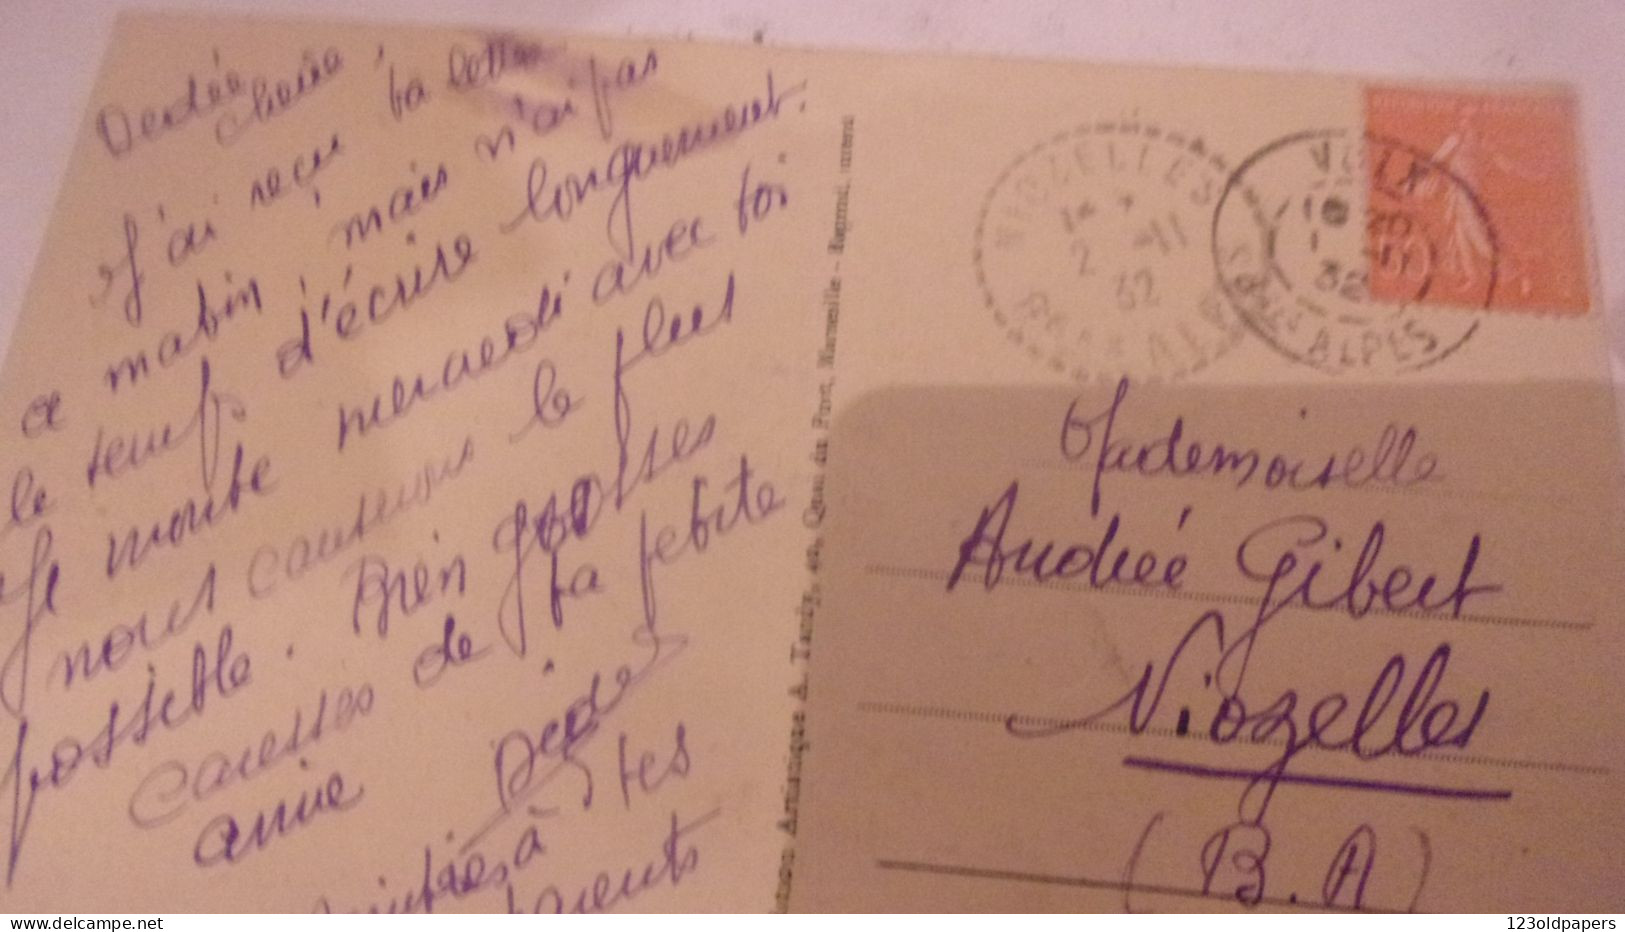 Dédée
chérie,
J'ai reçu ta lettre
ce matin, mais n'ai pas
le temps d'écrire longuement.
Je monte mercredi avec toi
nous causerons le plus
possible. Bien grosses
caresses de ta petite
amie
à tes
parents
Artistique A. Tardy, Quai du Port, Marseille
VIOZELLES
1* 2 -11 32
BSES ALPES
VOLX
32
ALPES
50
Mademoiselle
Andrée Gibert
Niozelles
(B. A)
123oldpapers